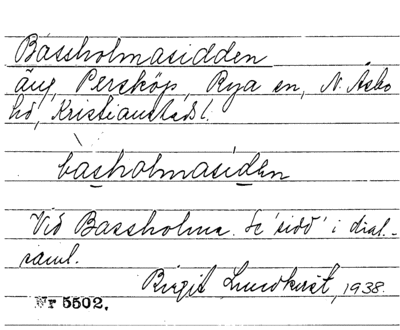 Bassholmasidden
äng, Persköp, Rya sn, N. Åsbo
hd, Kristianstads l.
basholmasiden
Vid Bassholma. Se 'sidd' i dial.-
saml.
Birgit Lundkvist, 1938.
Nr 5502.